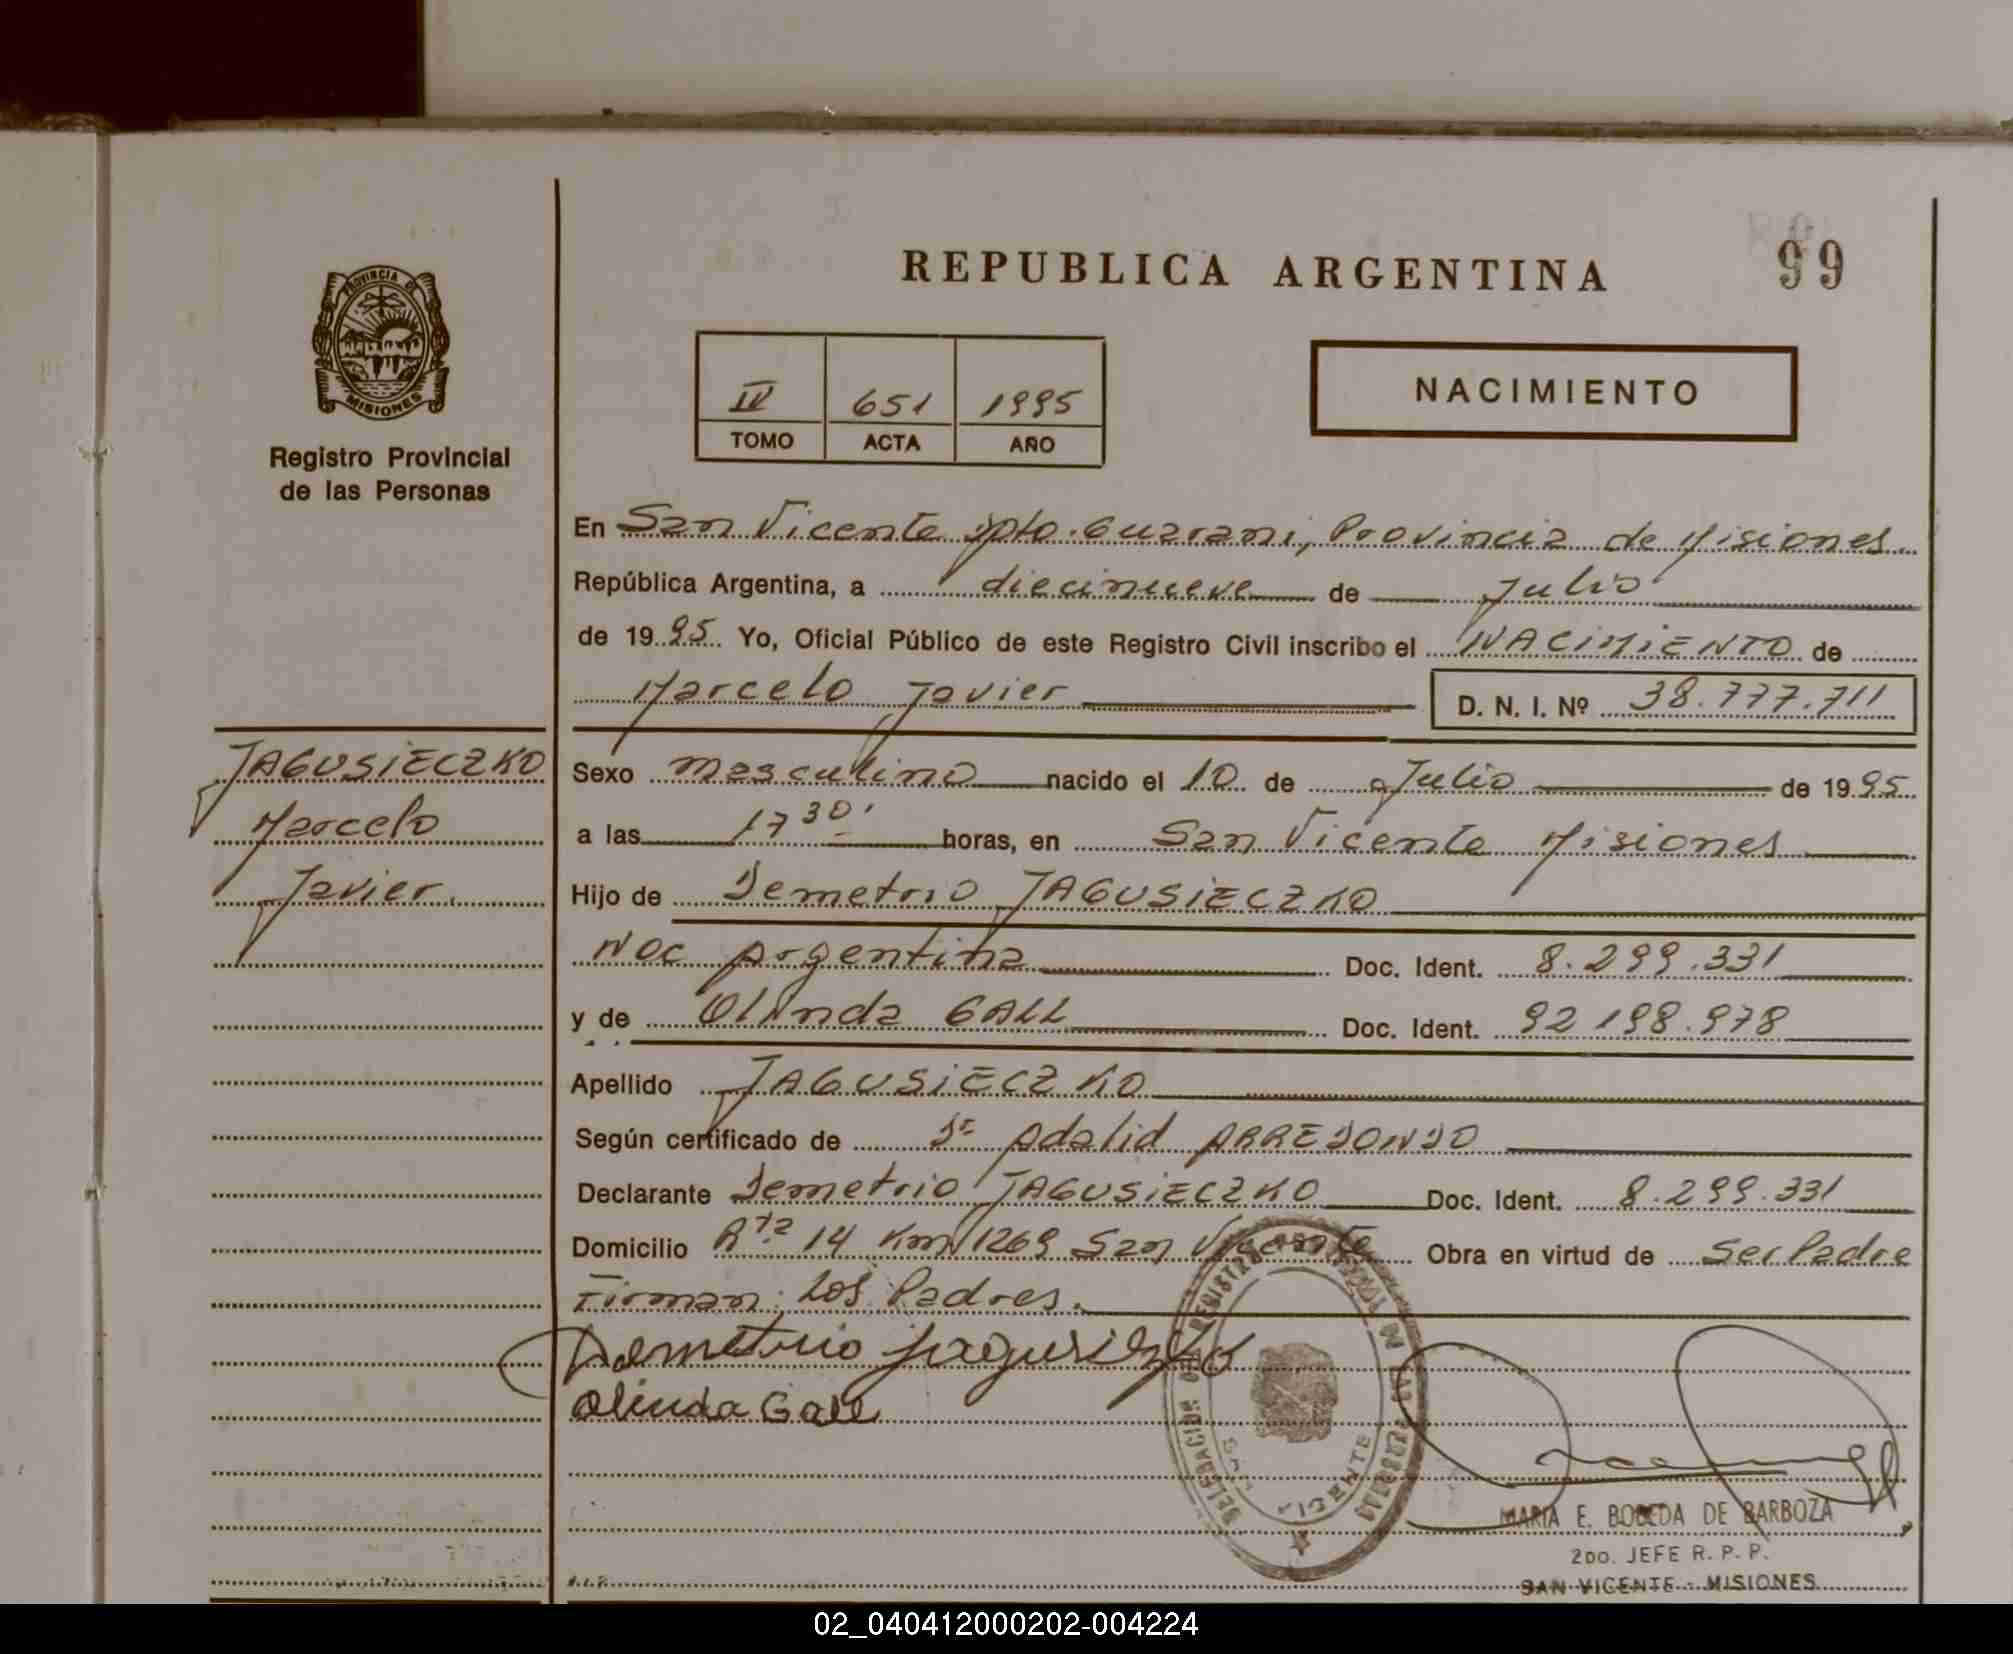 REPUBLICA ARGENTINA
99
PROVINCIA DE
MISIONES
Registro Provincial
de las Personas
IV 651 1995
TOMO ACTA AÑO
NACIMIENTO
En San Vicente Dpto. Guarani, Provincia de Misiones
República Argentina, a diecinueve de Julio
de 1995 Yo, Oficial Público de este Registro Civil inscribo el NACIMIENTO de
Marcelo Javier D. N. I. Nº 38.777.711
JAGUSIECZKO
Marcelo
Javier.
Sexo masculino nacido el 10 de Julio de 1995
a las 17 30' horas, en San Vicente Misiones
Hijo de Demetrio JAGUSIECZKO
Nac Argentina Doc. Ident. 8.299.331
y de Olinda GALL Doc. Ident. 92 198.978
Apellido JAGUSIECZKO
Según certificado de Dr Adalid ARREDONDO
Declarante Demetrio JAGUSIECZKO Doc. Ident. 8.299.331
Domicilio Rta 14 Km 1269 San Vicente Obra en virtud de Ser Padre
Firman: Los Padres.
Demetrio
Olinda Gall
DELEGACION REGISTRO PROVINCIAL DE LAS PERSONAS
SAN VICENTE
MARIA E. BOBEDA DE BARBOZA
2DO. JEFE R. P. P.
SAN VICENTE - MISIONES
02_040412000202-004224